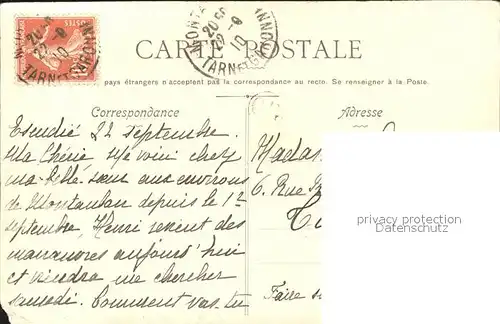 20 50
22 - 9
10
TARN-ET-GARONNE
CARTE POSTALE
pays étrangers n'acceptent pas la correspondance au recto. Se renseigner à la Poste.
Correspondance
Adresse
Escudié 22 septembre.
Ma Chérie me voici chez
ma belle-sœur aux environs
de Montauban depuis le 12
septembre, Henri revient des
manœuvres aujourd'hui
et viendra me chercher
samedi. Comment vas-tu
6. Rue
Faire
privacy protection
Datenschutz